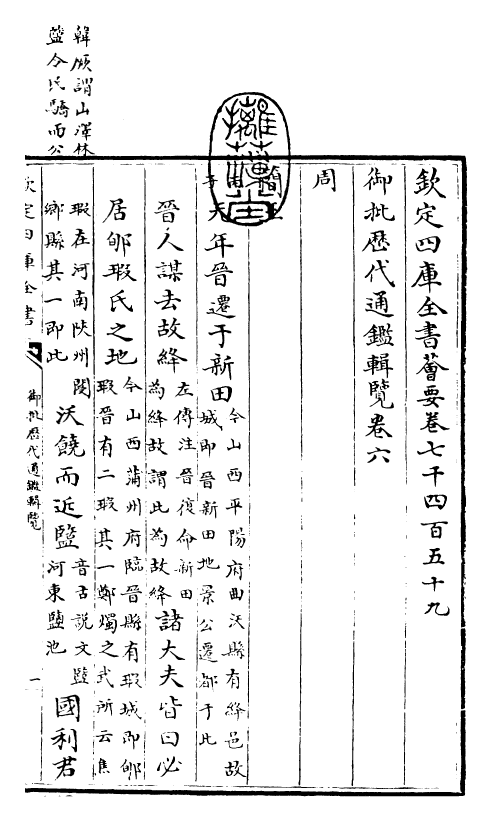 韓厥謂山澤林
盬令民驕而公
欽定四庫全書薈要卷七千四百五十九
御批歷代通鑑輯覽卷六
周
簡王
元年晉遷于新田今山西平陽府曲沃縣有絳邑故
城即晉新田地景公遷都于此
晉人謀去故絳左傳注晉復命新田
為絳故謂此為故絳諸大夫皆曰必
居郇瑕氏之地今山西蒲州府臨晉縣有瑕城即郇
瑕晉有二瑕其一鄭燭之武所云焦
瑕在河南陜州閿
鄉縣其一即此沃饒而近盬音古説文盬
河東鹽池國利君
欽定四庫全書
御批歷代通鑑輯覽
一